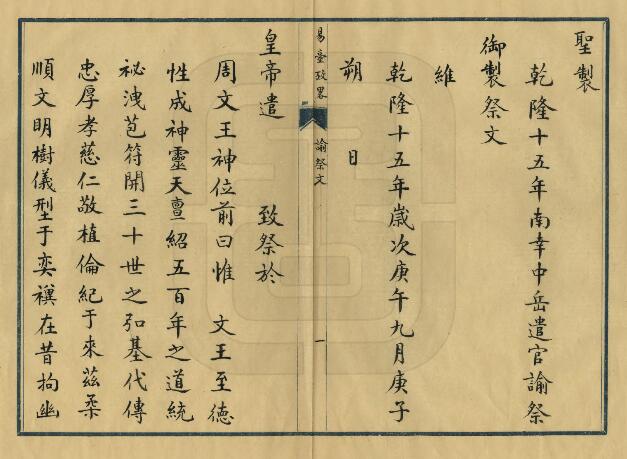 聖製
乾隆十五年南幸中岳遣官諭祭
御製祭文
維
乾隆十五年歲次庚午九月庚子
朔 日
易臺政畧 諭祭文 一
皇帝遣 致祭於
周文王神位前曰惟 文王至德
性成神靈天亶紹五百年之道統
祕洩苞符開三十世之弘基代傳
忠厚孝慈仁敬植倫紀于來茲柔
順文明樹儀型于奕禩在昔拘幽